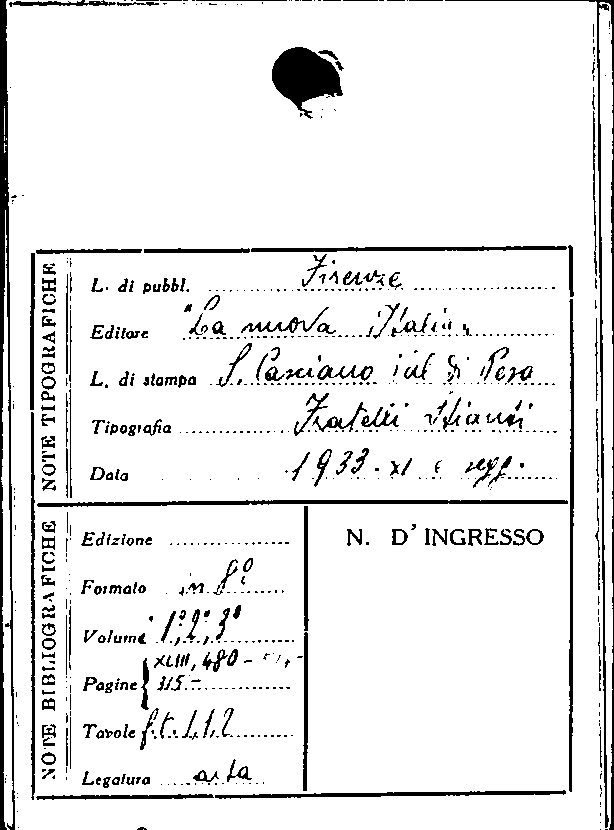 NOTE TIPOGRAFICHE
L. di pubbl. Firenze
Editore "La nuova Italia"
L. di stampa S. Casciano Val di Pesa
Tipografia Fratelli Stianti
Data 1933 - XI e segg.
NOTE BIBLIOGRAFICHE
Edizione
Formato in 8º
Volumi 1º, 2º, 3º
Pagine XLIII, 480 -
315 -
Tavole f.t. 1, 1, 2
Legatura
N. D' INGRESSO